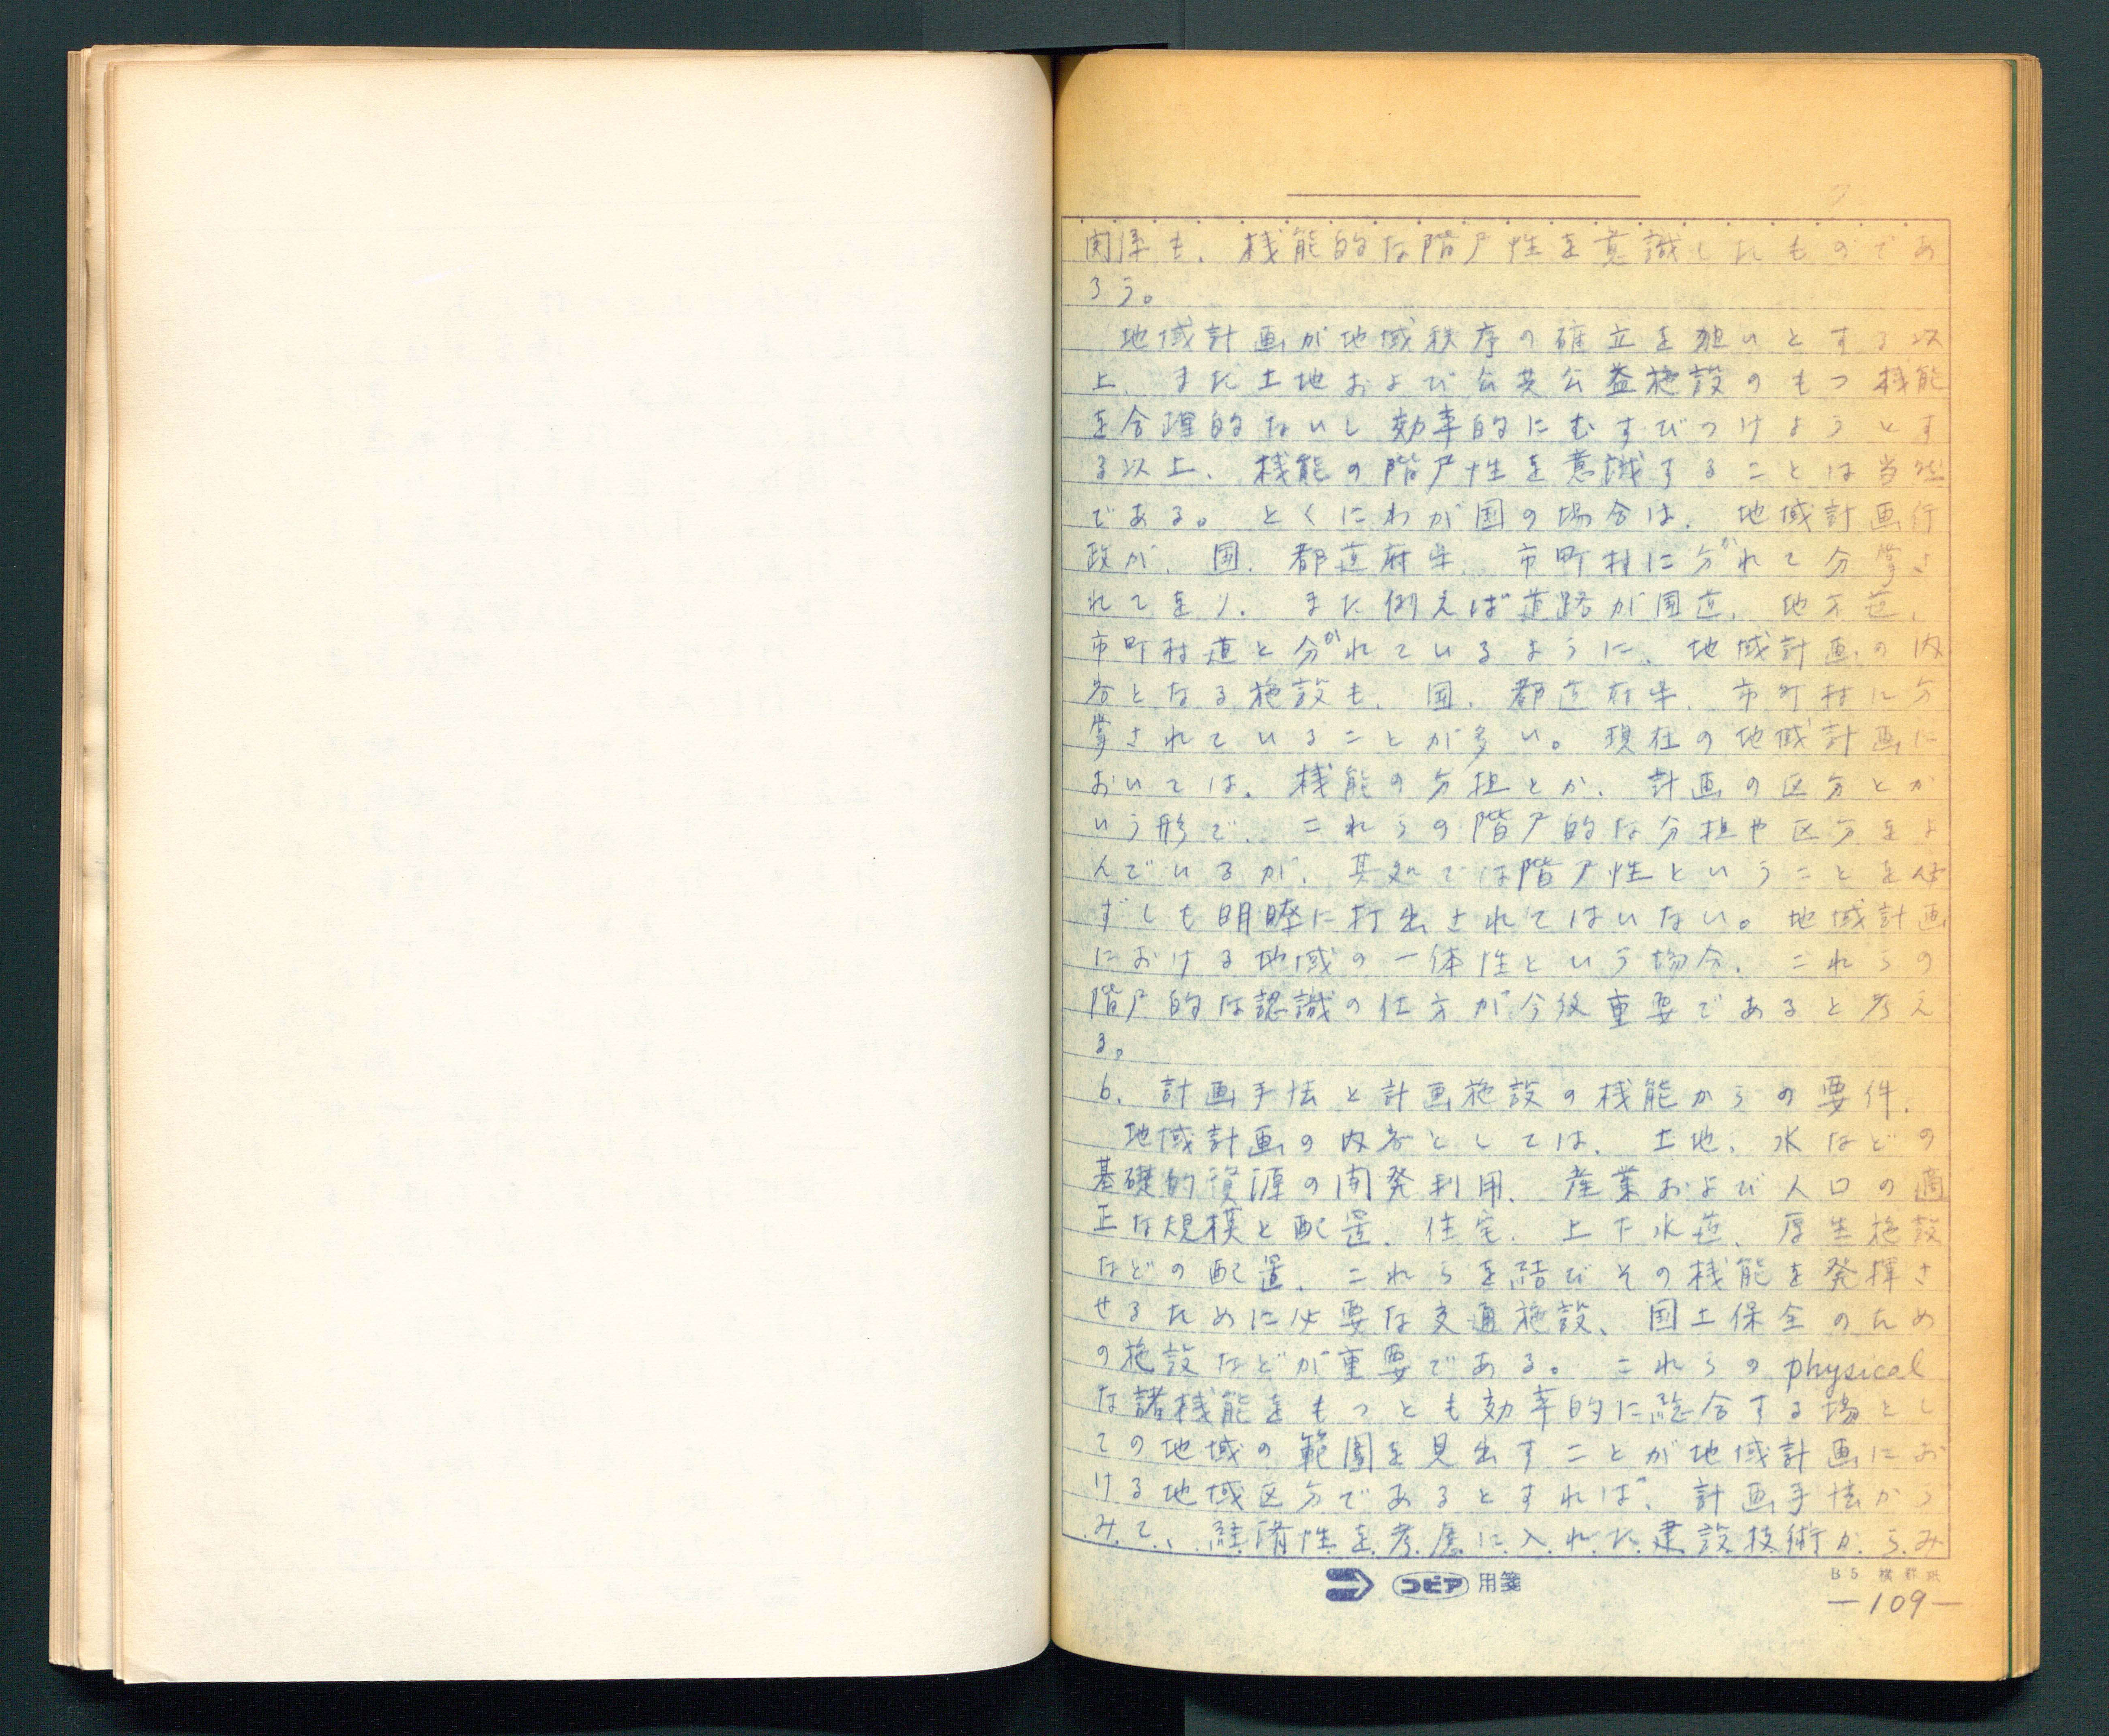 関係も、機能的な階層性を意識したものであ
ろう。
地域計画が地域秩序の確立を狙いとする以
上、また土地および公共公益施設のもつ機能
を合理的ないし効率的にむすびつけようとす
る以上、機能の階層性を意識することは当然
である。とくにわが国の場合は、地域計画行
政が、国、都道府県、市町村に分かれて分掌さ
れてをり、また例えば道路が国道、地方道、
市町村道と分かれているように、地域計画の内
容となる施設も、国、都道府県、市町村に分
掌されていることが多い。現在の地域計画に
おいては、機能の分担とか、計画の区分とか
いう形で、これらの階層的な分担や区分をよ
んでいるが、其処では階層性ということを必
ずしも明瞭に打出されてはいない。地域計画
における地域の一体性という場合、これらの
階層的な認識の仕方が今後重要であると考え
る。
6. 計画手法と計画施設の機能からの要件.
地域計画の内容としては、土地、水などの
基礎的資源の開発利用、産業および人口の適
正な規模と配置、住宅、上下水道、厚生施設
などの配置、これらを結びその機能を発揮さ
せるために必要な交通施設、国土保全のため
の施設などが重要である。これらのphysical
な諸機能をもっとも効率的に総合する場とし
ての地域の範囲を見出すことが地域計画にお
ける地域区分であるとすれば、計画手法から
みて、経済性を考慮に入れた建設技術からみ
コピア 用箋
B5 横罫紙
—109—